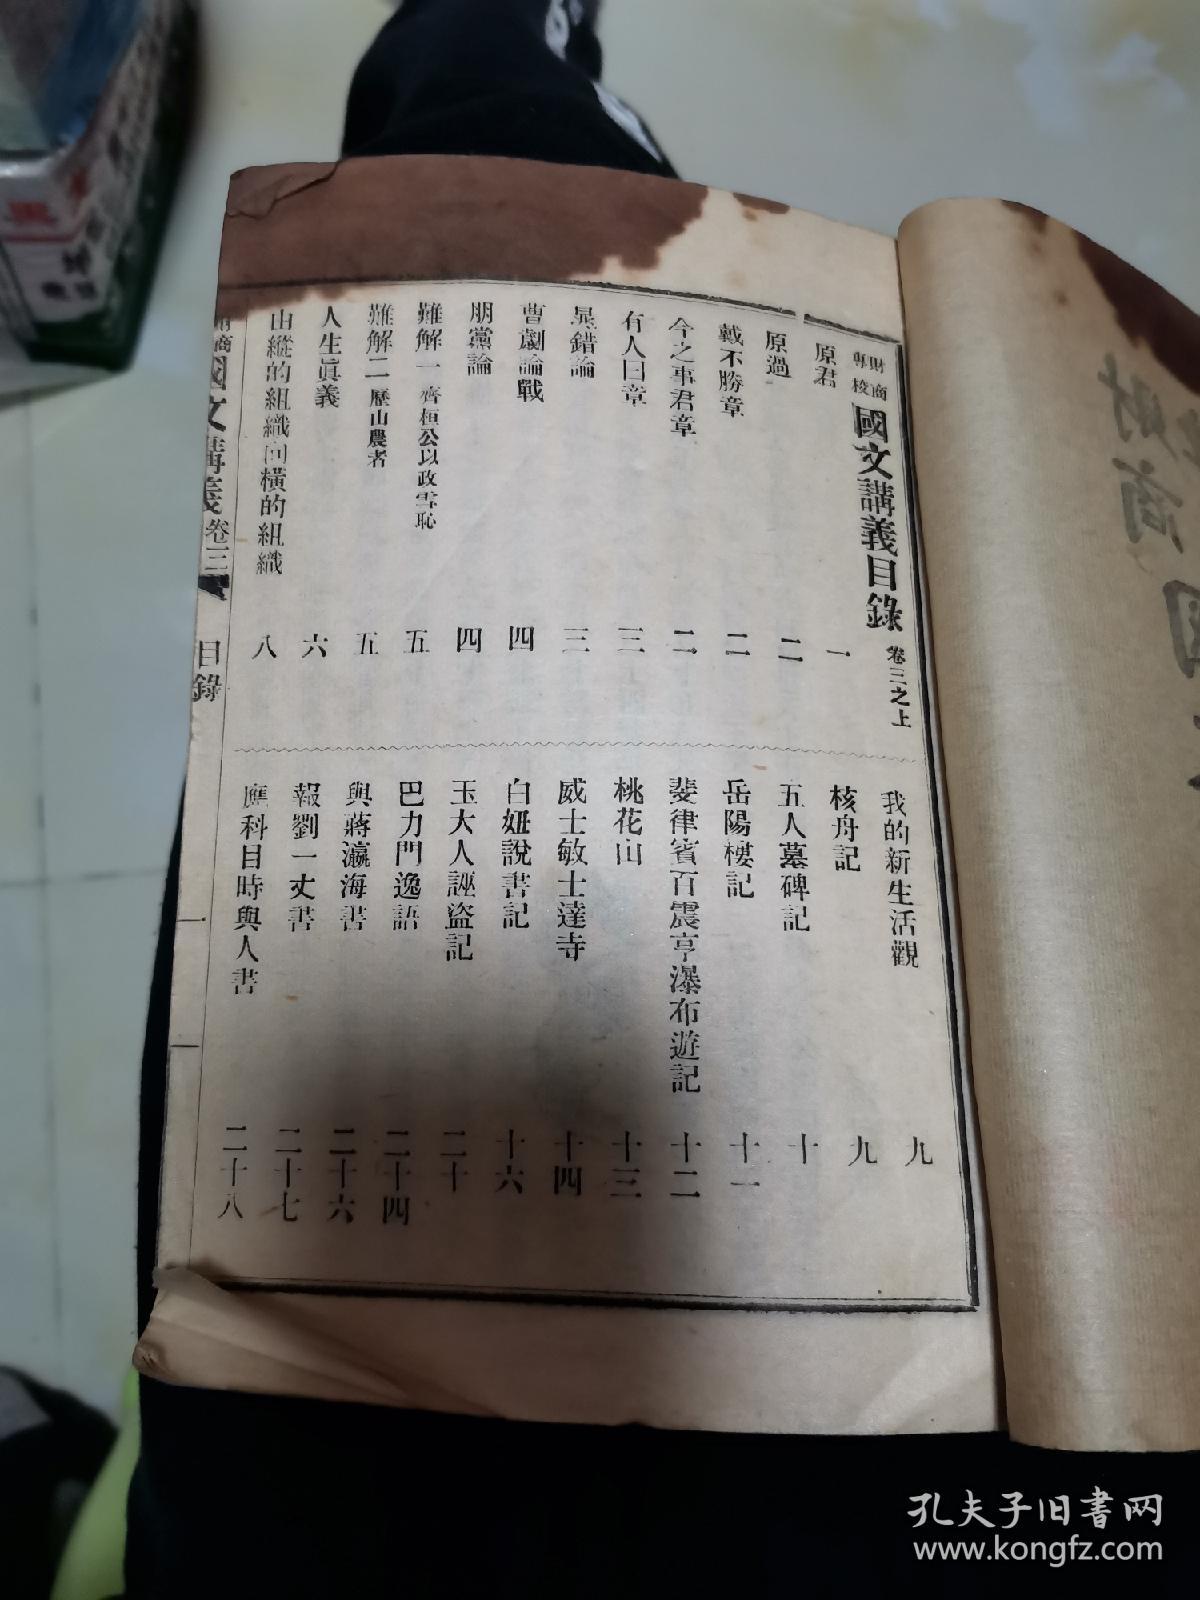 財商
專校
國文講義目錄 卷三之上
原君 一
原過 二
戴不勝章 二
今之事君章 二
有人曰章 三
鼂錯論 三
曹劌論戰 四
朋黨論 四
難解一 齊桓公以政雪恥 五
難解二 歷山農者 五
人生眞義 六
由縱的組織向橫的組織 八
我的新生活觀 九
核舟記 九
五人墓碑記 十
岳陽樓記 十一
斐律賓百震亨瀑布遊記 十二
桃花山 十三
威士敏士達寺 十四
白妞說書記 十六
玉大人誣盜記 二十
巴力門逸語 二十四
與蔣瀛海書 二十六
報劉一丈書 二十七
應科目時與人書 二十八
商國文講義卷三 目錄 一
財商
國
孔夫子旧书网
www.kongfz.com